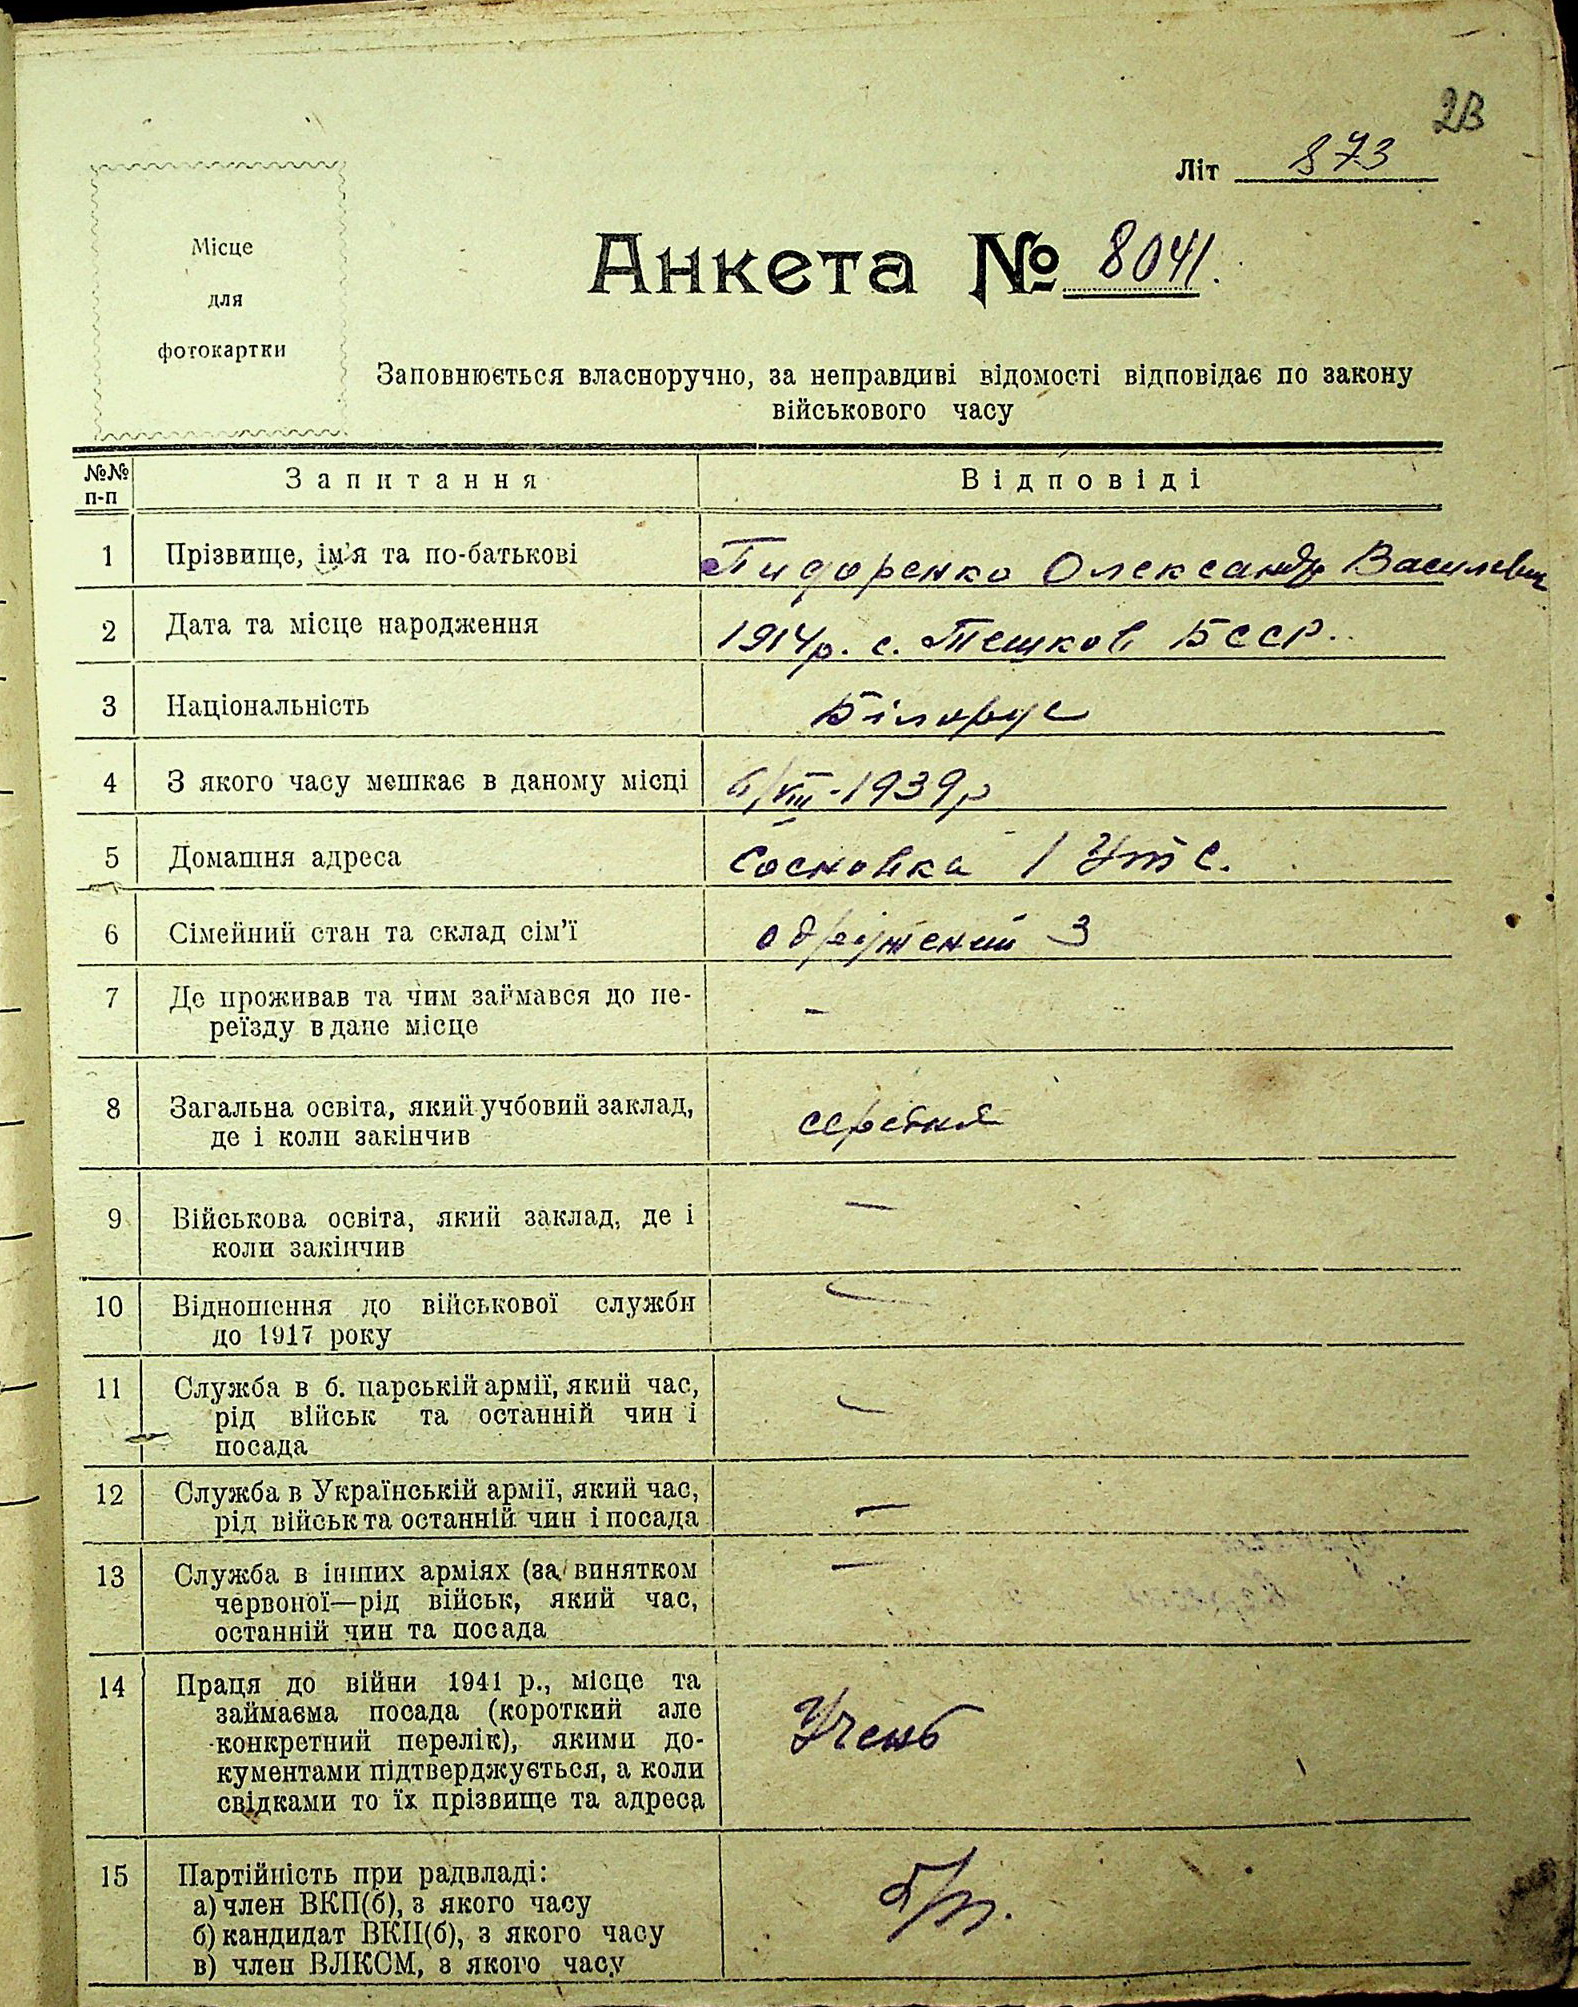 2В
Літ 873
Місце
для
фотокартки
Анкета № 8041.
Заповнюється власноручно, за неправдиві відомості відповідає по закону
військового часу
№№ п-п Запитання Відповіді
1 Прізвище, ім'я та по-батькові Олександр
2 Дата та місце народження 1914р. с. Тешков БССР.
3 Національність Білорус
4 З якого часу мешкає в даному місці 6/VIII-1939р
5 Домашня адреса Сосновка 1 Утс.
6 Сімейний стан та склад сім'ї одружений 3
7 Де проживав та чим займався до пе- –
реїзду в дане місце
8 Загальна освіта, який учбовий заклад, середня
де і коли закінчив
9 Військова освіта, який заклад, де і —
коли закінчив
10 Відношення до військової служби —
до 1917 року
11 Служба в б. царській армії, який час, —
рід військ та останній чин і
посада
12 Служба в Українській армії, який час, —
рід військ та останній чин і посада
13 Служба в інших арміях (за винятком —
червоної—рід військ, який час,
останній чин та посада
14 Праця до війни 1941 р., місце та
займаєма посада (короткий але
конкретний перелік), якими до- Учень
кументами підтверджується, а коли
свідками то їх прізвище та адреса
15 Партійність при радвладі:
а) член ВКП(б), з якого часу б/п.
б) кандидат ВКП(б), з якого часу
в) член ВЛКСМ, з якого часу